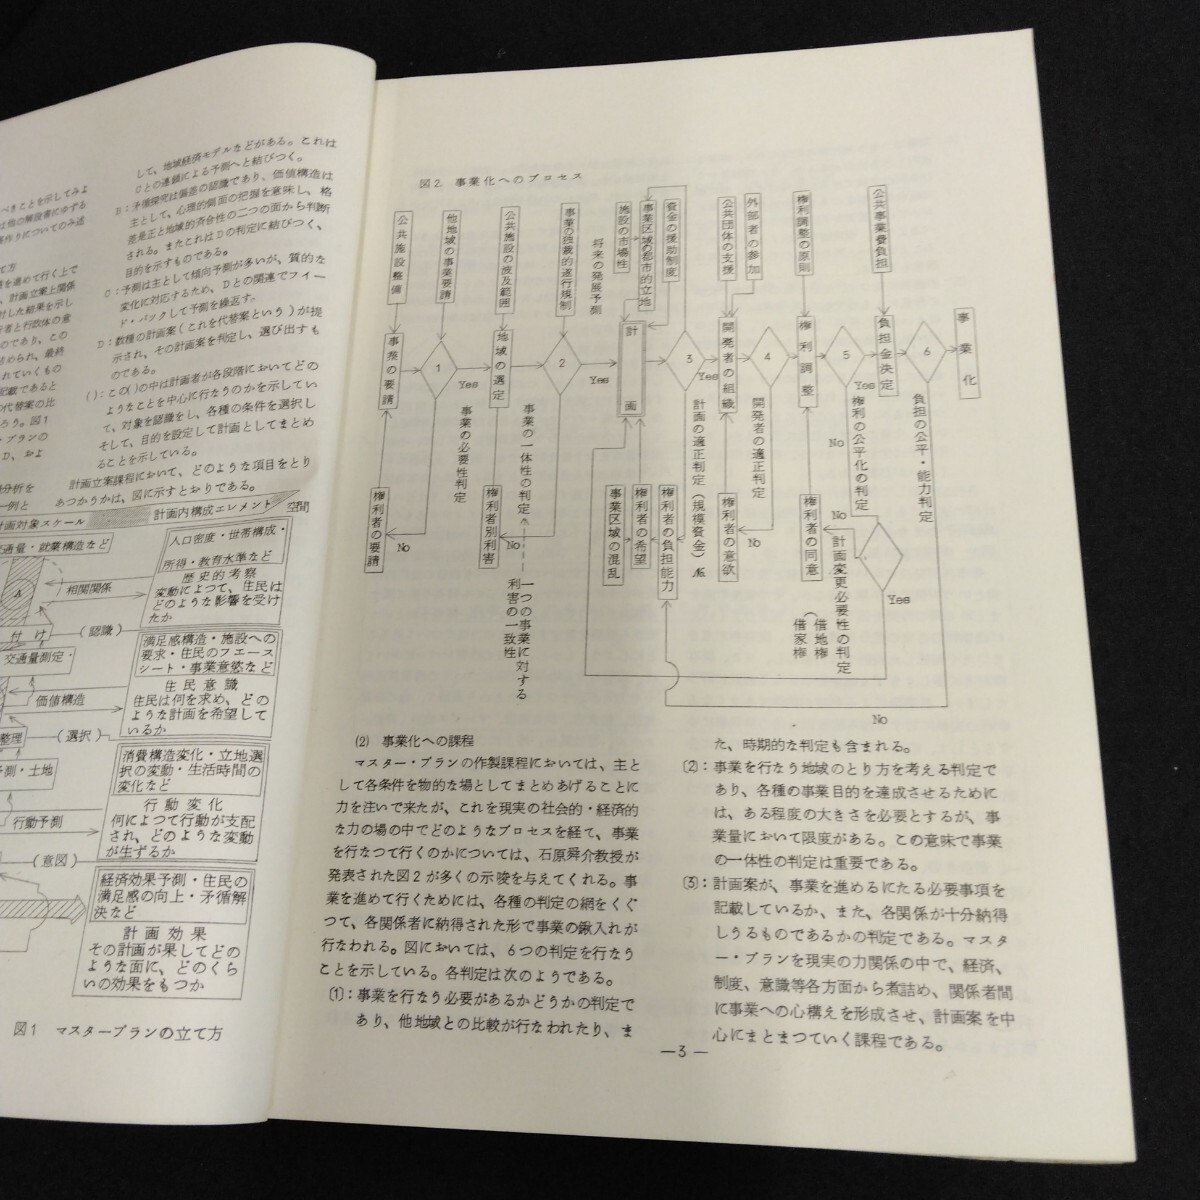 して、地域経済モデルなどがある。これは
Cとの連鎖による予測へと結びつく。
B：矛循探究は偏造の認識であり、価値構造は
主として、心理的側面の把握を意味し、格
差是正と地域的斉合性の二つの面から判断
される。またこれはDの判定に結びつく、
目的を示すものである。
C：予測は主として傾向予測が多いが、質的な
変化に対応するため、Dとの関連でフィー
ド・バックして予測を繰返す。
D：数種の計画案（これを代替案という）が提
示され、その計画案を判定し、選び出すも
のである。
( )：この( )の中は計画者が各段階においてどの
ようなことを中心に行なうのかを示してい
て、対象を認識をし、各種の条件を選択し
そして、目的を設定して計画としてまとめ
ることを示している。
計画立案課程において、どのような項目をとり
あつかうかは、図に示すとおりである。
べきことを示してみよ
は他の解説書にゆずる
て方
を進めて行く上で
、計画立案上関係
対した結果を示し
者と行政体の意
のであり、この
められ、最終
れていくもの
記載であると
の代替案の比
ろう。図1
・プランの
D、およ
分析を
一例と
計画対象スケール
計画内構成エレメント
空間
交通量・就業構造など
人口密度・世帯構成・
所得・教育水準など
歴史的考察
変動によつて、住民は
どのような影響を受け
たか
相関関係
A
付け
(認識)
交通量測定・
満足感構造・施設への
要求・住民のフエース
シート・事業意慾など
住民意識
住民は何を求め、どの
ような計画を希望して
いるか
価値構造
整理
(選択)
予測・土地
消費構造変化・立地選
択の変動・生活時間の
変化など
行動変化
何によつて行動が支配
され、どのような変動
が生ずるか
行動予測
(意図)
経済効果予測・住民の
満足感の向上・矛循解
決など
計画効果
その計画が果してどの
ような面に、どのくら
いの効果をもつか
図1 マスタープランの立て方
図2. 事業化へのプロセス
公共施設整備
他地域の事業要請
公共施設の波及範囲
事業の独裁的遂行規制
将来の発展予測
施設の市場性
事業区域の都市的立地
資金の援助制度
公共団体の支援
外部者の参加
権利調整の原則
公共事業費負担
事業の要請
1
Yes
地域の選定
2
Yes
計画
3
Yes
開発者の組織
4
権利調整
5
Yes
負担金決定
6
事業化
事業の必要性判定
事業の一体性の判定
計画の適正判定（規模資金）
No
開発者の適正判定
権利の公平化の判定
負担の公平・能力判定
No
権利者の要請
No
権利者別利害
No
一つの事業に対する
利害の一致性
事業区域の混乱
権利者の希望
権利者の負担能力
権利者の意欲
No
権利者の同意
No
計画変更必要性の判定
Yes
（借地権
借家権
No
(2) 事業化への課程
マスター・プランの作製課程においては、主と
して各条件を物的な場としてまとめあげることに
力を注いで来たが、これを現実の社会的・経済的
な力の場の中でどのようなプロセスを経て、事業
を行なつて行くのかについては、石原舜介教授が
発表された図2が多くの示唆を与えてくれる。事
業を進めて行くためには、各種の判定の網をくぐ
つて、各関係者に納得された形で事業の鍬入れが
行なわれる。図においては、6つの判定を行なう
ことを示している。各判定は次のようである。
(1)：事業を行なう必要があるかどうかの判定で
あり、他地域との比較が行なわれたり、ま
た、時期的な判定も含まれる。
(2)：事業を行なう地域のとり方を考える判定で
あり、各種の事業目的を達成させるために
は、ある程度の大きさを必要とするが、事
業量において限度がある。この意味で事業
の一体性の判定は重要である。
(3)：計画案が、事業を進めるにたる必要事項を
記載しているか、また、各関係が十分納得
しうるものであるかの判定である。マスタ
ー・プランを現実の力関係の中で、経済、
制度、意識等各方面から煮詰め、関係者間
に事業への心構えを形成させ、計画案を中
心にまとまつていく課程である。
—3—